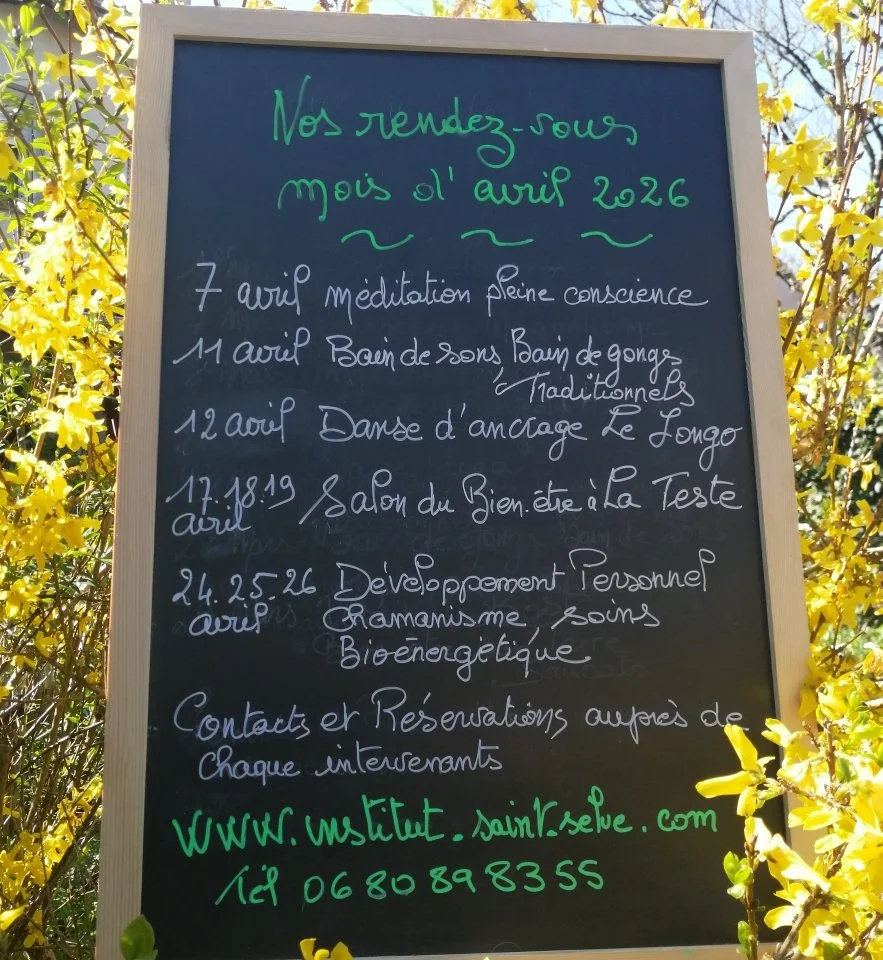 Nos rendez-vous
mois d'avril 2026
7 avril méditation pleine conscience
11 avril Bain de sons Bain de gongs
Traditionnels
12 avril Danse d'ancrage Le Longo
17.18.19 Salon du Bien.être à La Teste
avril
24.25.26 Développement Personnel
avril Chamanisme, soins
Bioénergétique
Contacts et Réservations auprès de
chaque intervenants
www.institut.saint-selve.com
Tél 06 80 89 83 55